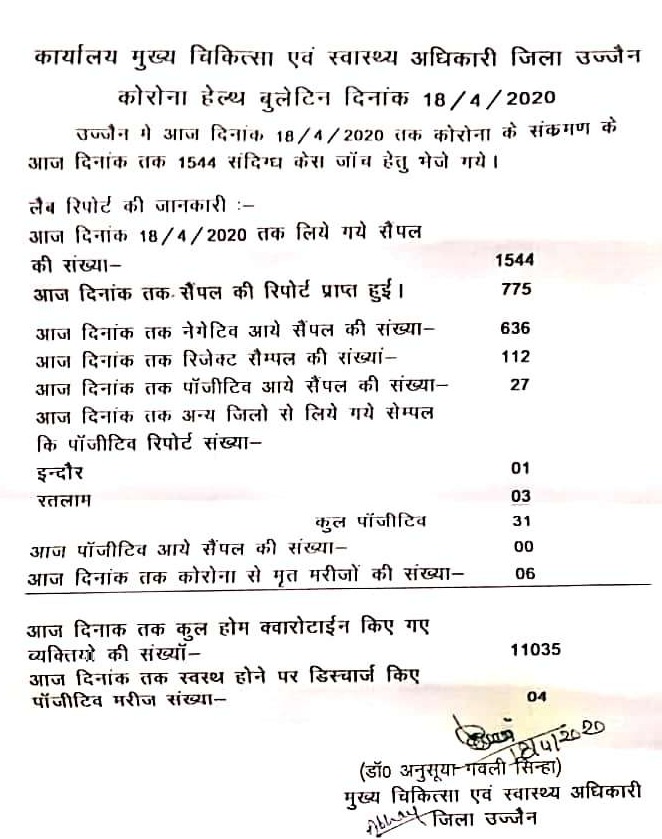 कार्यालय मुख्य चिकित्सा एवं स्वास्थ्य अधिकारी जिला उज्जैन
कोरोना हेल्थ बुलेटिन दिनांक 18/4/2020
उज्जैन मे आज दिनांक 18/4/2020 तक कोरोना के संकमण के
आज दिनांक तक 1544 संदिग्ध केस जॉच हेतु भेजे गये।
लैब रिपोर्ट की जानकारी :–
आज दिनांक 18/4/2020 तक लिये गये सैंपल
की संख्या– 1544
आज दिनांक तक सैंपल की रिपोर्ट प्राप्त हुई। 775
आज दिनांक तक नेगेटिव आये सैंपल की संख्या– 636
आज दिनांक तक रिजेक्ट सैम्पल की संख्यां– 112
आज दिनांक तक पॉजीटिव आये सैंपल की संख्या– 27
आज दिनांक तक अन्य जिलो से लिये गये सेम्पल
कि पॉजीटिव रिपोर्ट संख्या–
इन्दौर 01
रतलाम 03
कुल पॉजीटिव 31
आज पॉजीटिव आये सैंपल की संख्या– 00
आज दिनांक तक कोरोना से मृत मरीजों की संख्या– 06
आज दिनाक तक कुल होम क्वारोटाईन किए गए
व्यक्तियो की संख्यॉ– 11035
आज दिनांक तक स्वस्थ होने पर डिस्चार्ज किए
पॉजीटिव मरीज संख्या– 04
18/4/2020
(डॉ0 अनुसूया गवली सिन्हा)
मुख्य चिकित्सा एवं स्वास्थ्य अधिकारी
जिला उज्जैन